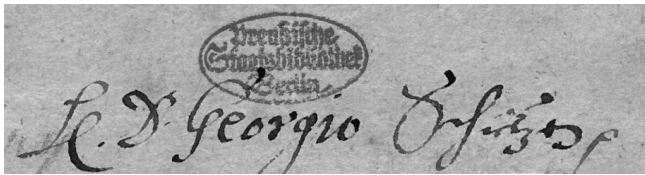 Preußische
Staatsbibliothek
Berlin
D. Georgio Schützen